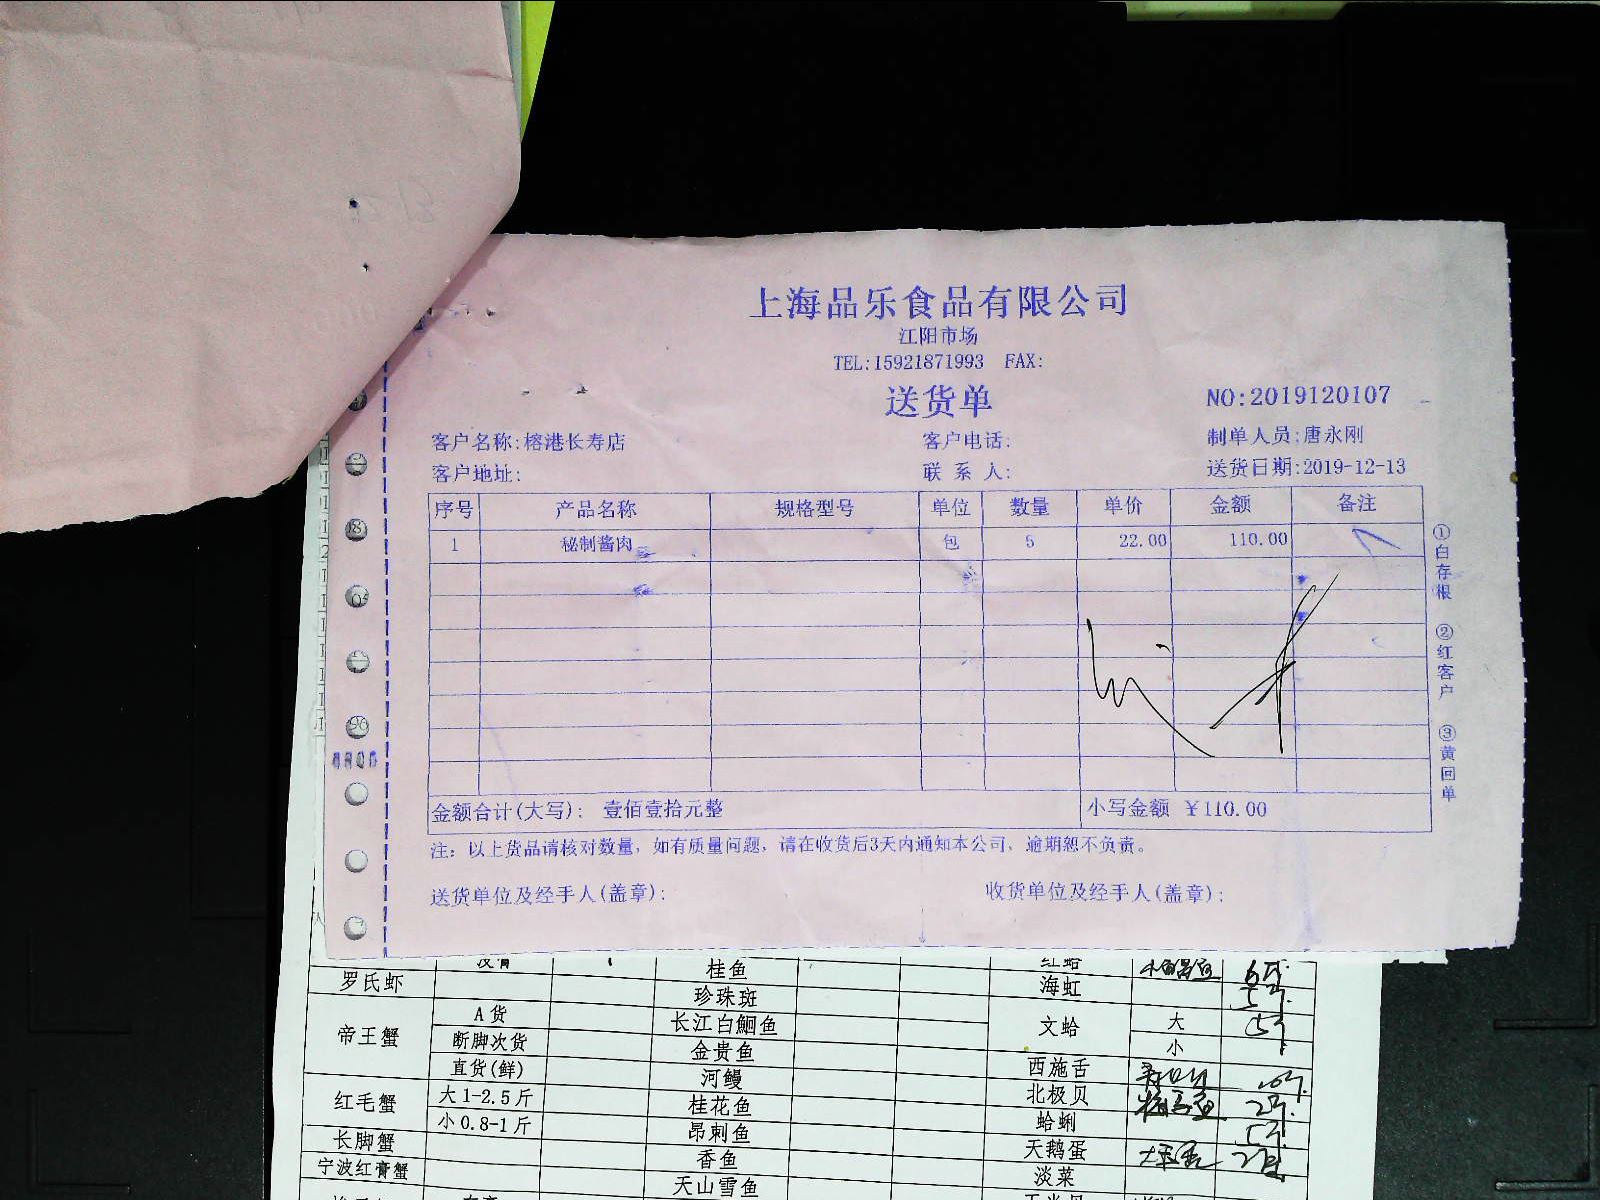 上海品乐食品有限公司
江阳市场
TEL:15921871993 FAX:
送货单
NO:2019120107
客户名称:榕港长寿店 客户电话: 制单人员:唐永刚
客户地址: 联系人: 送货日期:2019-12-13
序号 产品名称 规格型号 单位 数量 单价 金额 备注
1 秘制酱肉 包 5 22.00 110.00
金额合计(大写): 壹佰壹拾元整 小写金额 ￥110.00
注: 以上货品请核对数量, 如有质量问题, 请在收货后3天内通知本公司, 逾期恕不负责。
送货单位及经手人(盖章): 收货单位及经手人(盖章):
①白存根 ②红客户 ③黄回单
桂鱼
罗氏虾 珍珠斑 海虹
帝王蟹 A货 长江白鮰鱼 文蛤 大
断脚次货 金贵鱼 小
直货(鲜) 河鳗 西施舌
红毛蟹 大1-2.5斤 桂花鱼 北极贝
小0.8-1斤 昂刺鱼 蛤蜊
长脚蟹 香鱼 天鹅蛋
宁波红膏蟹 天山雪鱼 淡菜